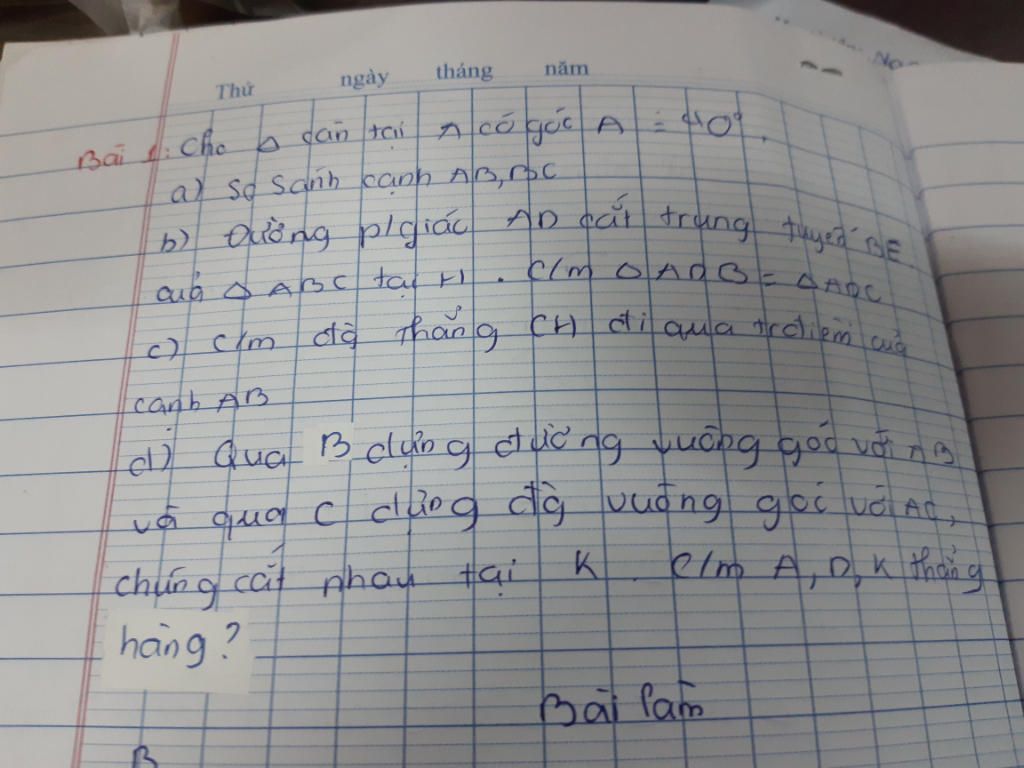 Thứ ngày tháng năm
Bài 1: Cho Δ cân tại A có góc A = 40°.
a) So sánh cạnh AB, BC
b) Đường p/giác AD cắt trung tuyến BE
của Δ ABC tại H. C/m Δ ADB = Δ ADC
c) C/m đg thẳng CH đi qua tr điểm của
cạnh AB
d) Qua B dựng đường vuông góc với AB
và qua C dựng đg vuông góc với AC,
chúng cắt nhau tại K. C/m A, D, K thẳng
hàng?
Bài làm
B